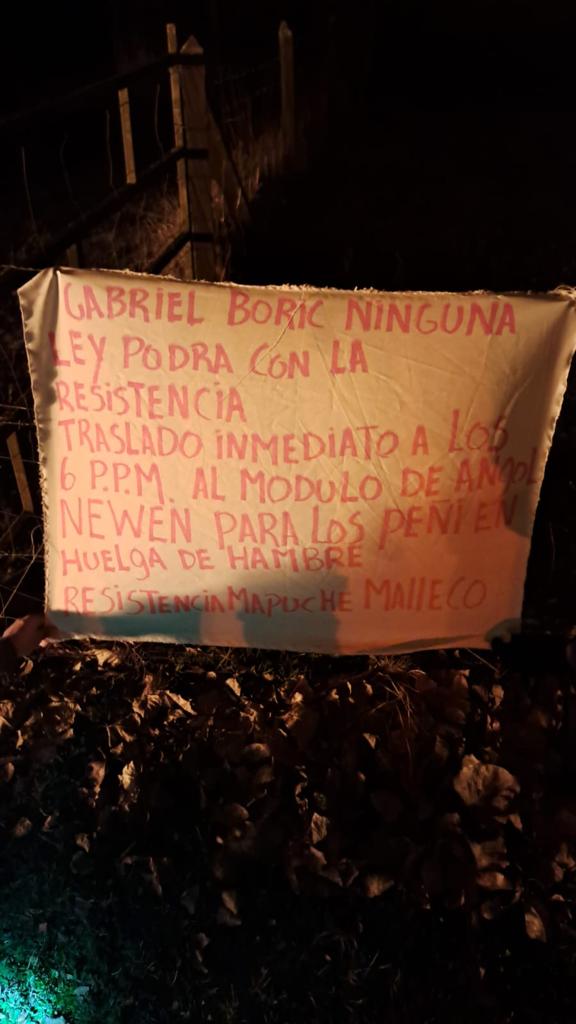 GABRIEL BORIC NINGUNA
LEY PODRA CON LA
RESISTENCIA
TRASLADO INMEDIATO A LOS
6 P.P.M. AL MODULO DE ANGOL
NEWEN PARA LOS PEÑI EN
HUELGA DE HAMBRE
RESISTENCIA MAPUCHE MAllECO